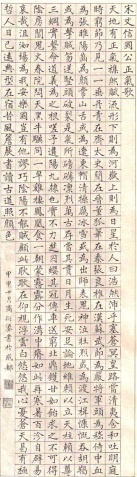 宋文信國公正氣歌
天地有正氣雜然賦流形下則為河嶽上則為日星於人曰浩然沛乎塞蒼冥皇路當清夷含和吐明庭
時窮節乃見一一垂丹青在齊太史簡在晉董狐筆在秦張良椎在漢蘇武節為嚴將軍頭為嵇侍中血
為張睢陽齒為顏常山舌或為遼東帽清操厲冰雪或為出師表鬼神泣壯烈或為渡江楫慷慨吞胡羯
或為擊賊笏逆豎頭破裂是氣所磅礴凜烈萬古存當其貫日月生死安足論地維賴以立天柱賴以尊
三綱實繫命道義為之根嗟予遘陽九隸也實不力楚囚纓其冠傳車送窮北鼎鑊甘如飴求之不可得
陰房闃鬼火春院閟天黑牛驥同一皂雞棲鳳凰食一朝蒙霧露分作溝中瘠如此再寒暑百沴自辟易
哀哉沮洳場為我安樂國豈有他繆巧陰陽不能賊顧此耿耿在仰視浮雲白悠悠我心憂蒼天曷有極
哲人日已遠典型在夙昔風簷展書讀古道照顏色
甲申十月 書於成都